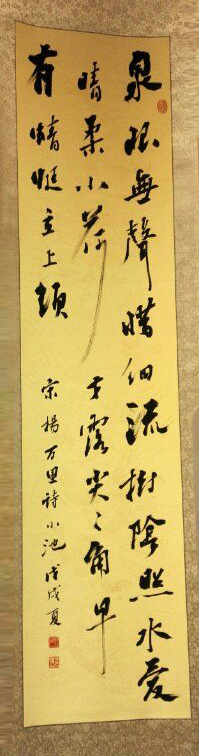 泉眼無聲惜細流樹陰照水愛
晴柔小荷才露尖々角早
有蜻蜓立上頭
宋楊万里詩小池戊戌夏